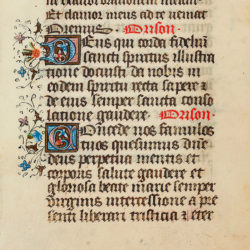 ne exaudi orationem meam
Et clamor meus ad te veniat
Oremus. Orison.
Deus qui corda fidelium
sancti spiritus illustra
tione docuisti da nobis in
eodem spiritu recta sapere et
de eius semper sancta conso
latione gaudere. Orison.
Concede nos famulos
tuos quesumus domine
deus perpetua mentis et
corporis salute gaudere et
gloriosa beate marie semper
virginis intercessione a pre
senti liberari tristicia et eter